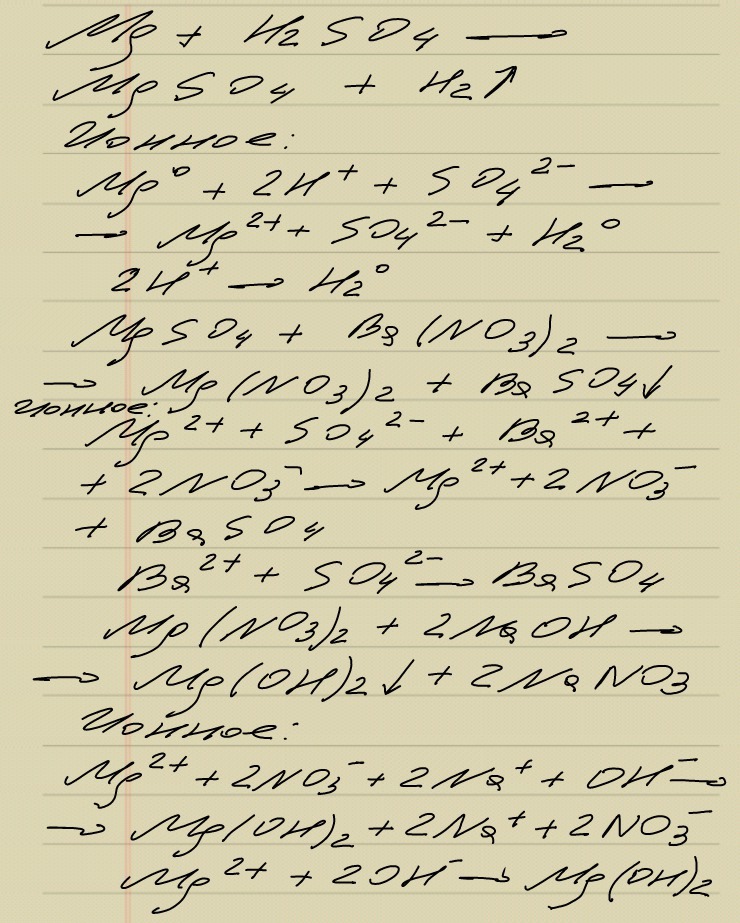 Mg + H₂SO₄ →
MgSO₄ + H₂↑
Ионное:
Mg⁰ + 2H⁺ + SO₄²⁻ →
→ Mg²⁺ + SO₄²⁻ + H₂⁰
2H⁺ → H₂⁰
MgSO₄ + Ba(NO₃)₂ →
→ Mg(NO₃)₂ + BaSO₄↓
Ионное:
Mg²⁺ + SO₄²⁻ + Ba²⁺ +
+ 2NO₃⁻ → Mg²⁺ + 2NO₃⁻
+ BaSO₄
Ba²⁺ + SO₄²⁻ → BaSO₄
Mg(NO₃)₂ + 2NaOH →
→ Mg(OH)₂↓ + 2NaNO₃
Ионное:
Mg²⁺ + 2NO₃⁻ + 2Na⁺ + OH⁻ →
→ Mg(OH)₂ + 2Na⁺ + 2NO₃⁻
Mg²⁺ + 2OH⁻ → Mg(OH)₂